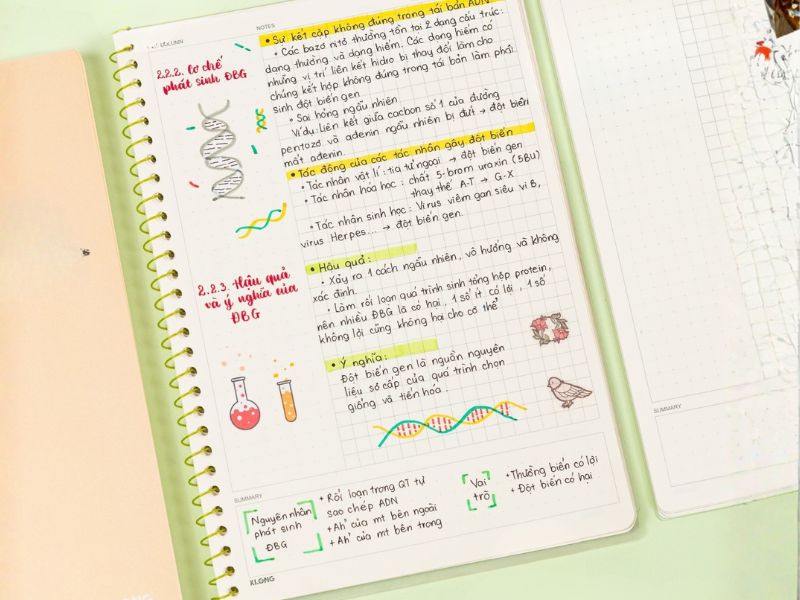 NOTES
2.2.2. Cơ chế
phát sinh ĐBG
• Sự kết cặp không đúng trong tái bản ADN
• Các bazơ nitơ thường tồn tại 2 dạng cấu trúc:
dạng thường và dạng hiếm. Các dạng hiếm có
những vị trí liên kết hidro bị thay đổi làm cho
chúng kết hợp không đúng trong tái bản làm phát
sinh đột biến gen
• Sai hỏng ngẫu nhiên
Ví dụ: liên kết giữa cacbon số 1 của đường
pentozơ và adenin ngẫu nhiên bị đứt → đột biến
mất adenin.
• Tác động của các tác nhân gây đột biến
• Tác nhân vật lí: tia tử ngoại → đột biến gen
• Tác nhân hoá học: chất 5-brom uraxin (5BU)
thay thế A-T → G-X
• Tác nhân sinh học: Virus viêm gan siêu vi B,
virus Herpes... → đột biến gen.
2.2.3. Hậu quả
và ý nghĩa của
ĐBG
• Hậu quả:
• Xảy ra 1 cách ngẫu nhiên, vô hướng và không
xác định.
• Làm rối loạn quá trình sinh tổng hợp protein,
nên nhiều ĐBG là có hại, 1 số ít có lợi, 1 số
không lợi cũng không hại cho cơ thể
• Ý nghĩa:
Đột biến gen là nguồn nguyên
liệu sơ cấp của quá trình chọn
giống và tiến hóa.
SUMMARY
Nguyên nhân
phát sinh
ĐBG
+ Rối loạn trong QT tự
sao chép ADN
+ Ah' của mt bên ngoài
+ Ah' của mt bên trong
Vai
trò
• Thường biến có lợi
• Đột biến có hại
KLONG
SUMMARY